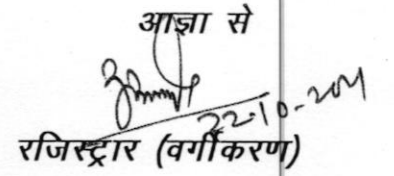 आज्ञा से
22-10-2011
रजिस्ट्रार (वर्गीकरण)